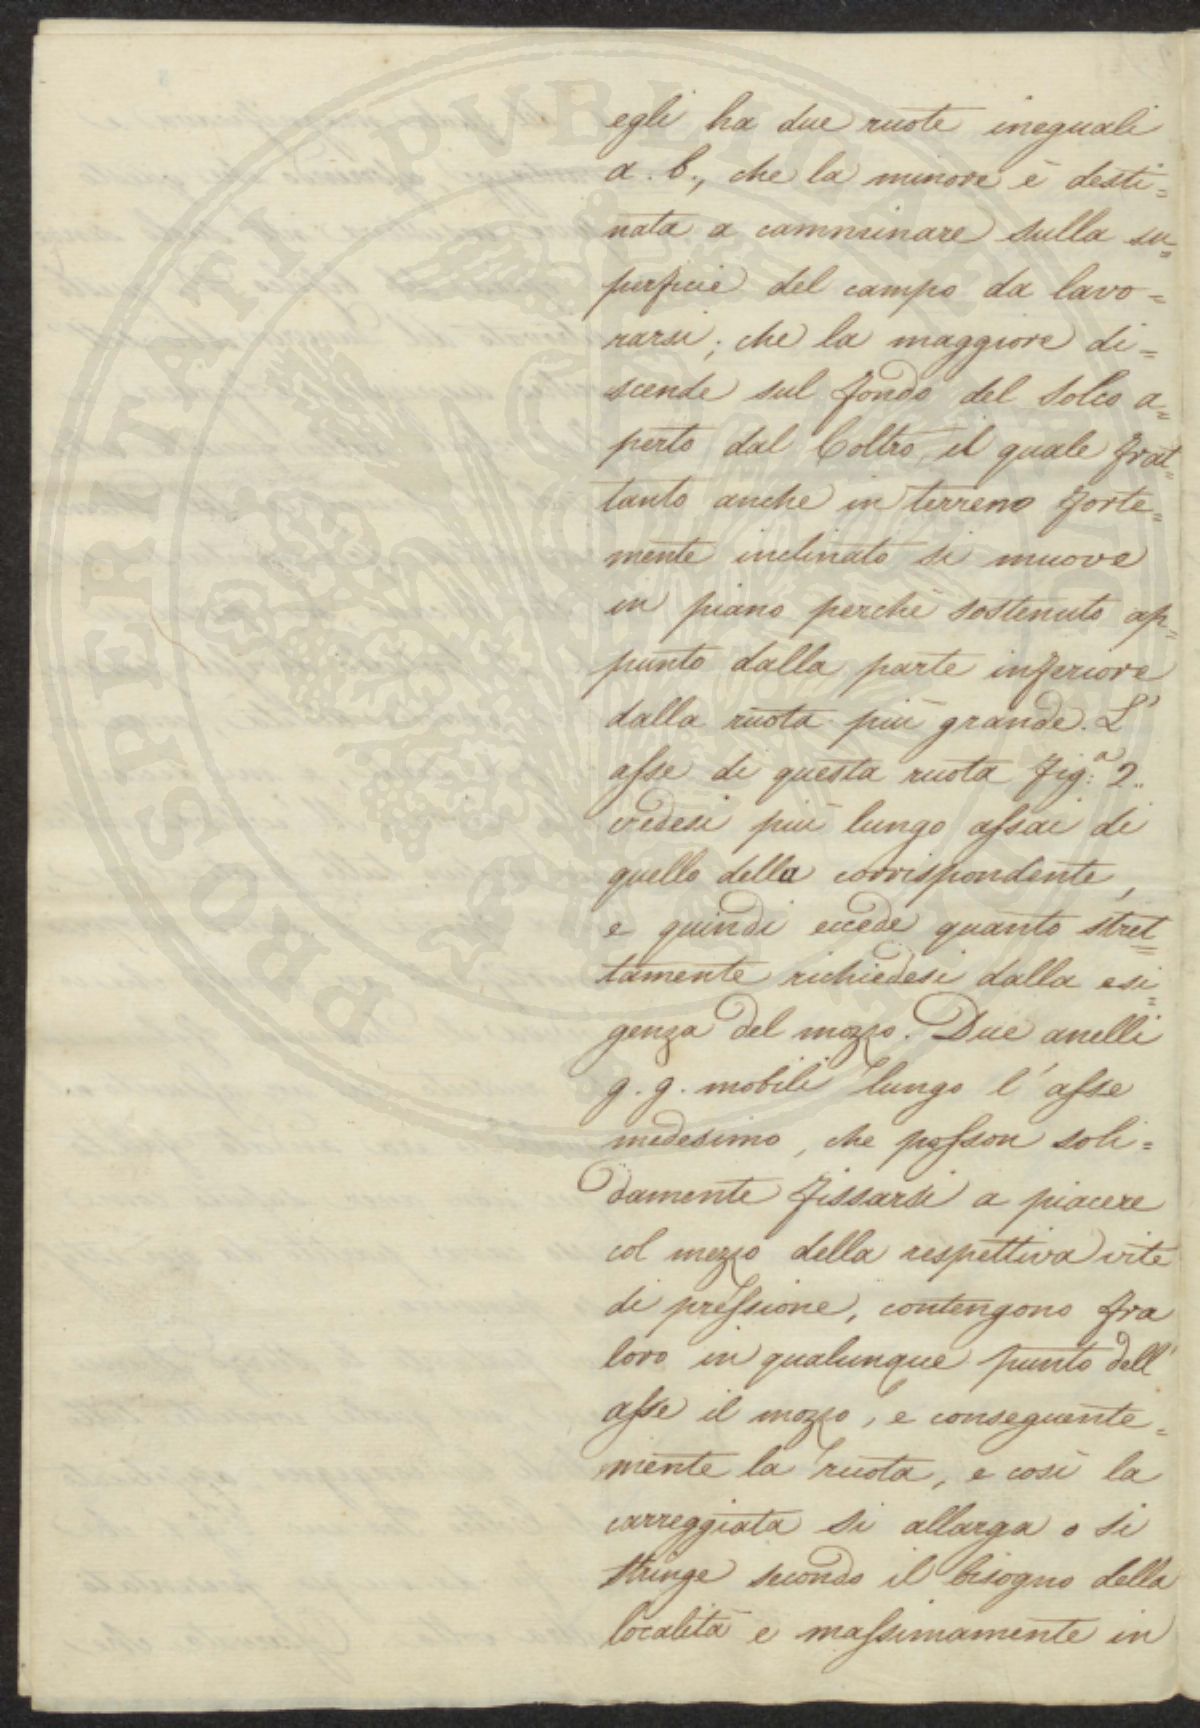 egli ha due ruote ineguali
a. b., che la minore è desti=
nata a camminare sulla su=
perficie del campo da lavo=
rarsi; che la maggiore di=
scende sul fondo del solco a=
perto dal Coltro, il quale frat=
tanto anche in terreno forte=
mente inclinato si muove
in piano perchè sostenuto ap=
punto dalla parte inferiore
dalla ruota più grande. L'
asse di questa ruota Fig.ª 2.
vedesi più lungo assai di
quello della corrispondente,
e quindi eccede quanto stret=
tamente richiedesi dalla esi=
genza del mozzo. Due anelli
g. g. mobili lungo l'asse
medesimo, che posson soli=
damente fissarsi a piacere
col mezzo della respettiva vite
di pressione, contengono fra
loro in qualunque punto dell'
asse il mozzo, e conseguente=
mente la ruota, e così la
carreggiata si allarga o si
stringe secondo il bisogno della
località e massimamente in
PROSPERITATI PVBLICAE